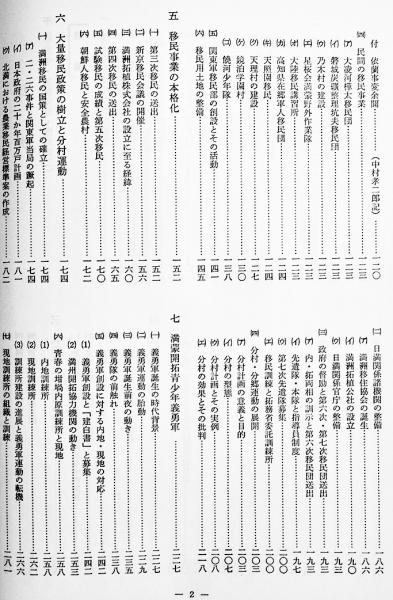 付 依蘭事変余聞……………(中村孝二郎記)……一二〇
㈣ 民間の移民事業……………一二三
(ア) 大凌河樺太移民団……………一二三
(イ) 磐城炭礦整理坑夫移民団……………
(ウ) 乃木村の建設……………
(エ) 星桜会満蒙野外作業隊……………
(オ) 大陸移民講習所……………
(カ) 高知県在郷軍人移民団……………
(キ) 天照園移民……………
(ク) 天理村の建設……………
(ケ) 鏡泊学園村……………一三八
(コ) 饒河少年隊……………
㈤ 関東軍移民部の創設とその活動……………一四四
㈥ 移民用土地の整備……………一四五
五 移民事業の本格化……………一五二
㈠ 第三次移民の送出……………一五二
㈡ 新京移民会議の開催……………一五六
㈢ 満洲拓植株式会社の設立に至る経緯……………一六〇
㈣ 第四次移民の送出……………一六五
㈤ 試験移民の成績と第五次移民……………一七〇
㈥ 朝鮮人移民と安全農村……………一七二
六 大量移民政策の樹立と分村運動……………一七四
㈠ 満洲移民の国策としての確立……………一七四
(ア) 二・二六事件と関東軍当局の激起……………一七四
(イ) 日本政府の二十か年百万戸計画……………一八一
(ウ) 北満における農業移民経営標準案の作成……………一八二
㈡ 日満関係諸機関の整備……………一八六
(ア) 満洲移住協会の誕生……………一八六
(イ) 満洲拓植公社の設立……………
(ウ) 日満関係官庁の整備……………
㈢ 政府の督励と第六次・第七次移民団送出……………
(ア) 内・拓両相の訓示と第六次移民団送出……………一九七
(イ) 先遣隊・本隊と指導員制度……………
(ウ) 第七次先遣隊募集……………
(エ) 移民訓練と拓務省委託訓練所……………
㈣ 分村・分郷運動の展開……………
(ア) 分村計画の意義と目的……………
(イ) 分村の型態……………二〇七
(ウ) 分村計画とその実例……………
(エ) 分村の効果とその批判……………二一八
七 満蒙開拓青少年義勇軍……………二二七
㈠ 義勇軍誕生の時代背景……………二二七
㈡ 義勇軍運動の胎動……………二二九
㈢ 義勇軍誕生前夜の動き……………二三五
㈣ 義勇隊の前触れ……………
㈤ 義勇軍創設に対する内地・現地の対応……………二四二
(1) 義勇軍創設と「建白書」と募集……………
(2) 満州開拓協力機関の動き……………
㈥ 青春の坩堝内原訓練所と現地……………二五八
(1) 内地訓練所……………
(2) 現地訓練所……………二六二
(3) 訓練所建設の進展と義勇軍運動の転機……………二六六
㈦ 現地訓練所の組織と訓練……………二八一
— 2 —